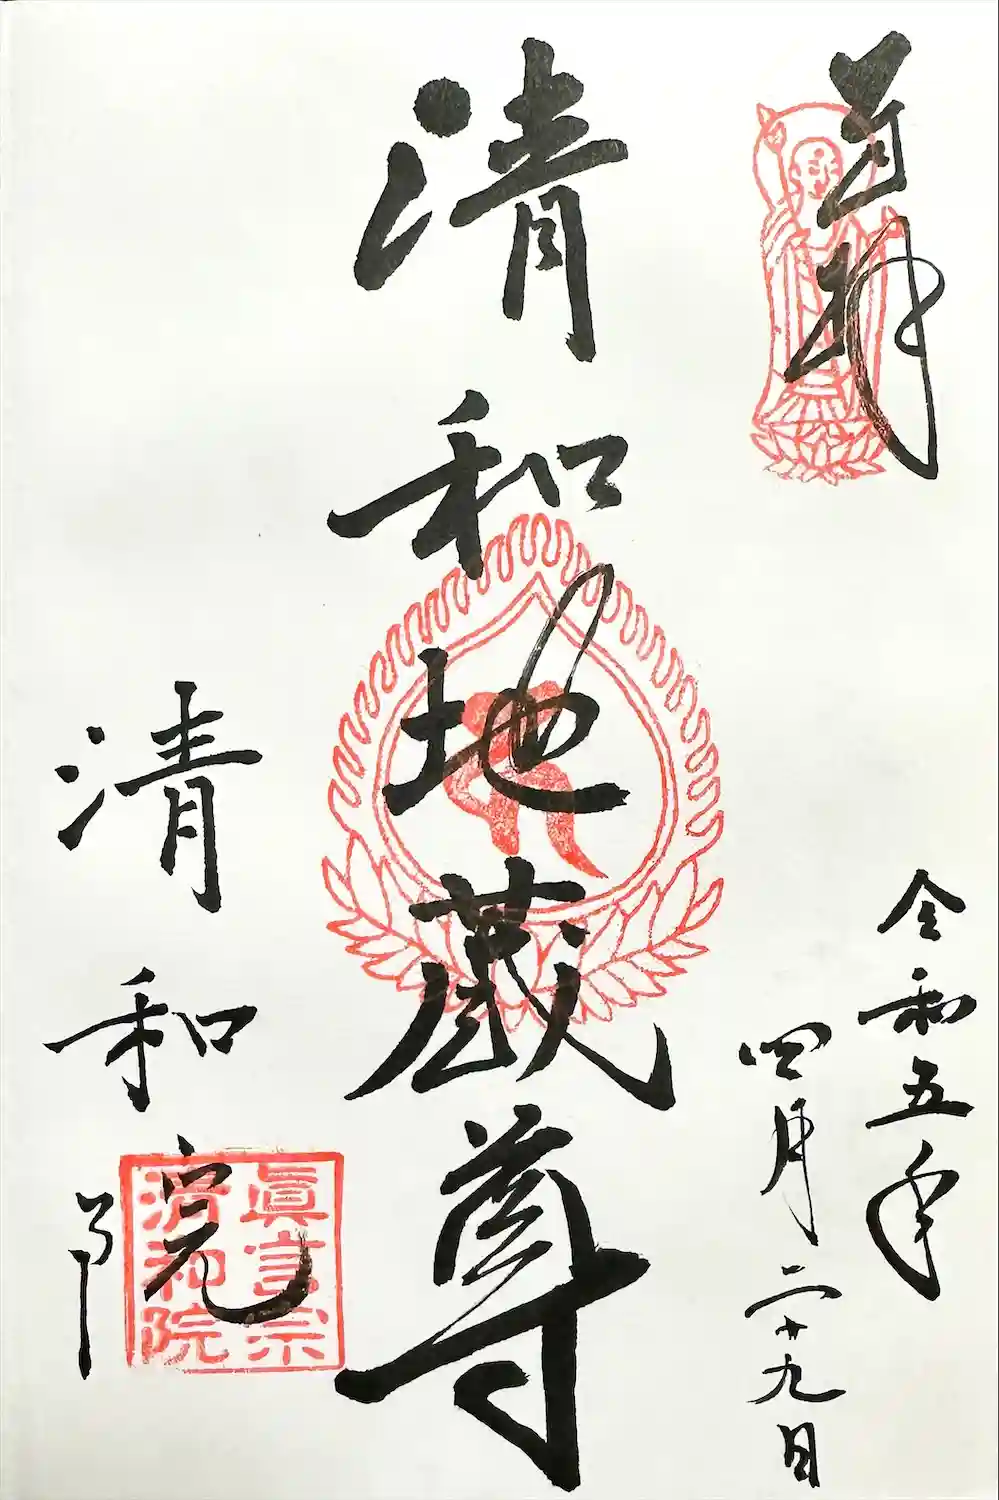 奉拝
令和五年
四月二十九日
清和地蔵尊
清和院
眞言宗
清和院